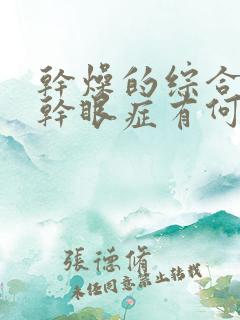 幹燥的综合
幹眼症有何
張德脩
未经同意禁止转载